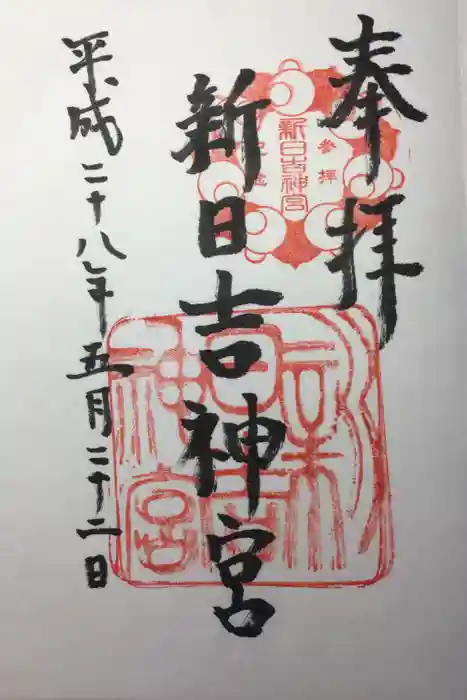 奉拝
参拝
新日吉神宮
記念
新日吉神宮
平成二十八年五月二十二日
新日吉神宮